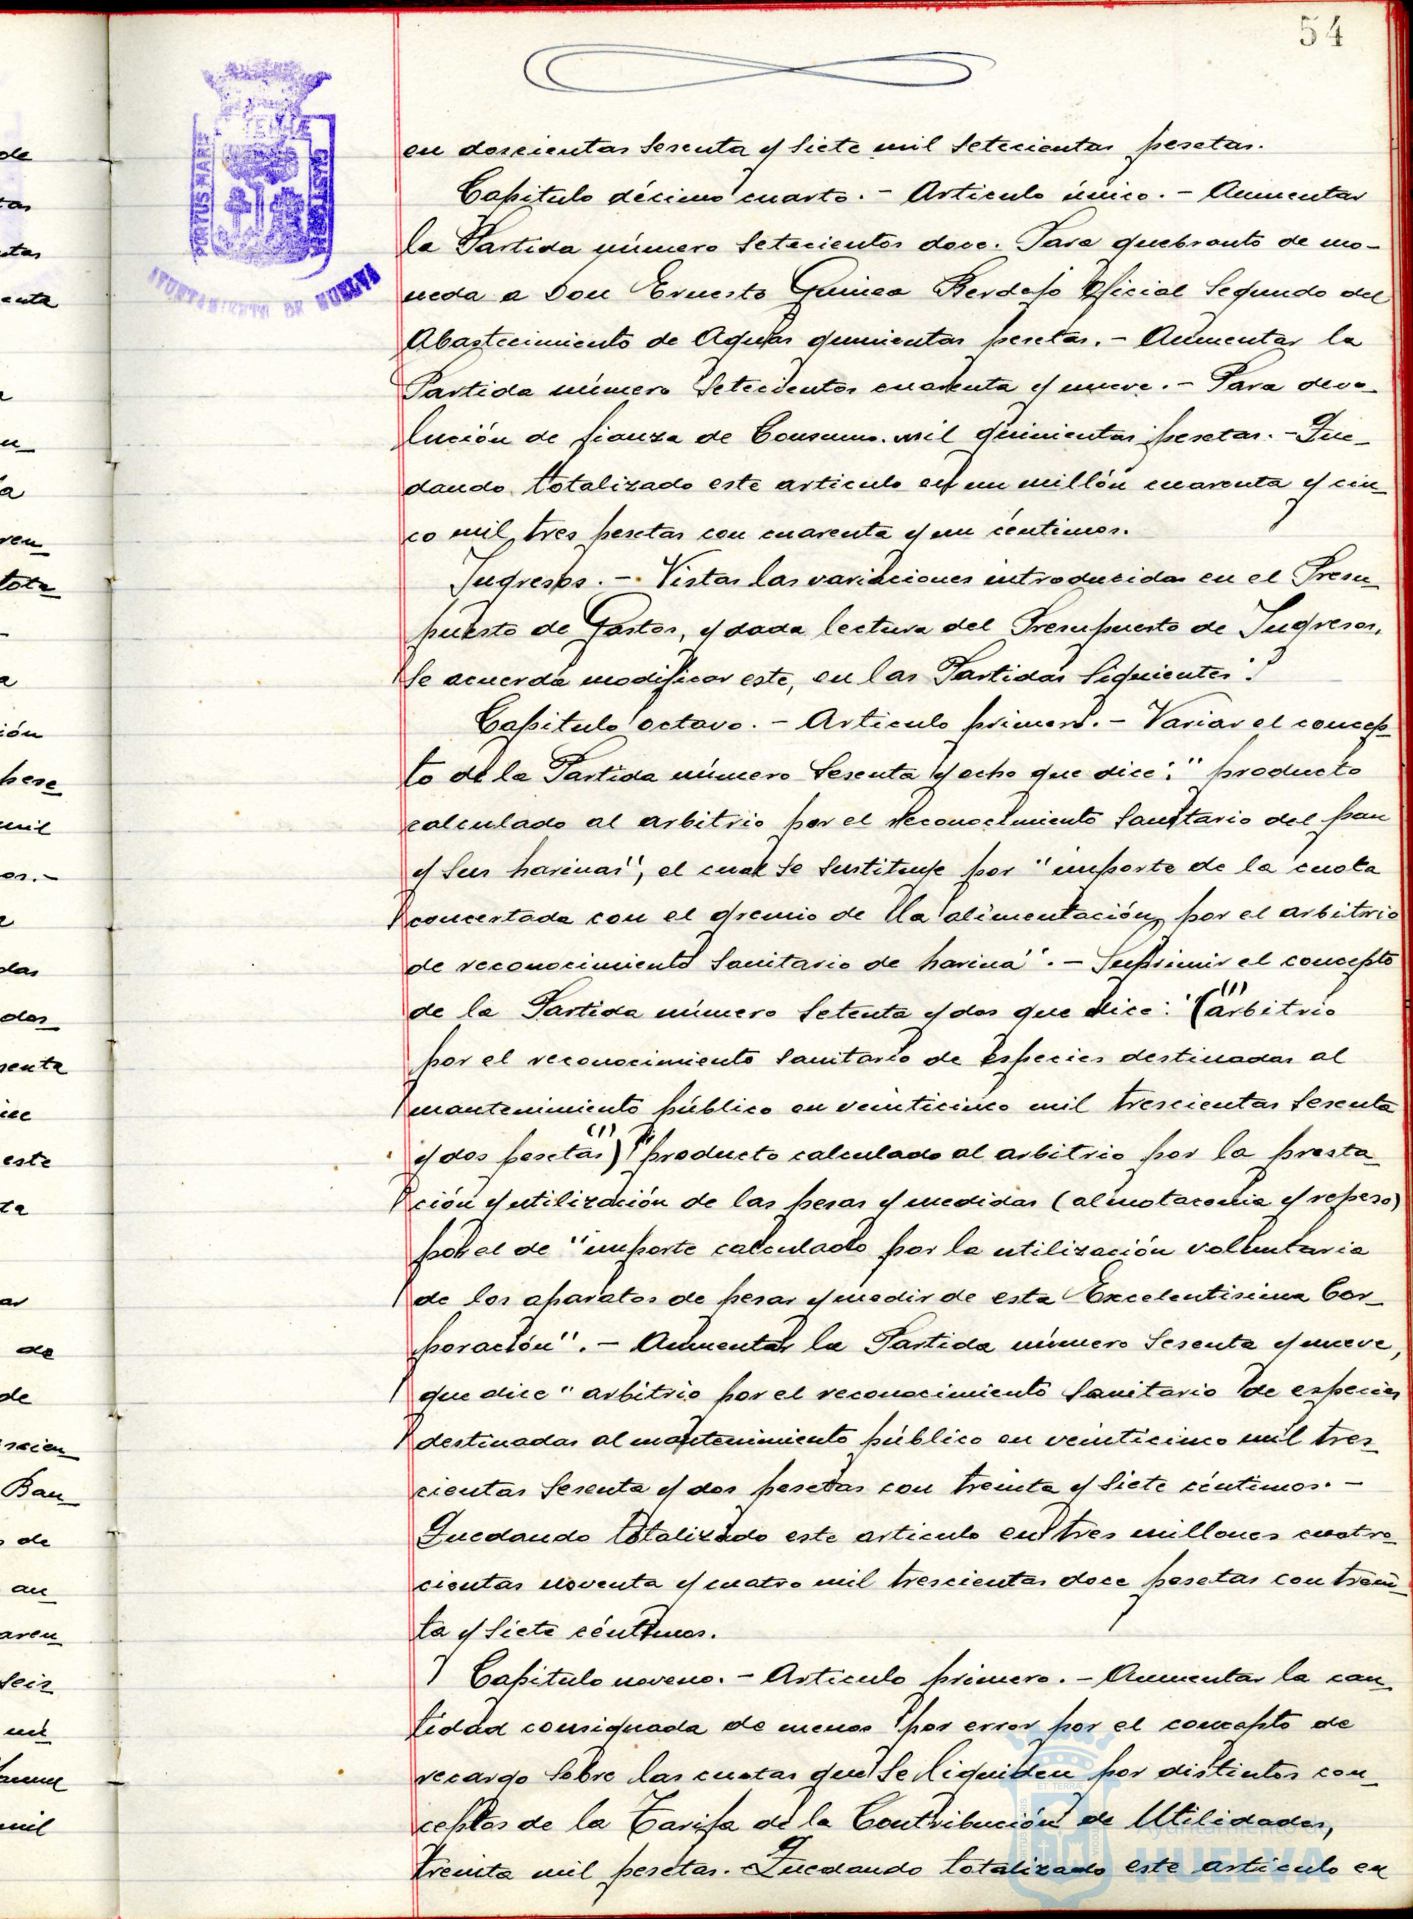 54
PORTUS MARIS ET TERRÆ CUSTODIA
AYUNTAMIENTO DE HUELVA
en doscientas sesenta y siete mil setecientas pesetas.
Capitulo décimo cuarto. - Articulo único. - Aumentar
la Partida número setecientos doce. Para quebranto de mo-
neda a Don Ernesto Guinea Berdejo Oficial Segundo del
Abastecimiento de Aguas quinientas pesetas. - Aumentar la
Partida número setecientos cuarenta y nueve. - Para devo-
lución de fianza de Consumo. mil quinientas pesetas. - Que-
dando totalizado este articulo en un millón cuarenta y cin-
co mil tres pesetas con cuarenta y un céntimos.
Ingresos. - Vistas las variaciones introducidas en el Presu-
puesto de Gastos, y dada lectura del Presupuesto de Ingresos,
se acuerda modificar este, en las Partidas siguientes:
Capitulo octavo. - Articulo primero. - Variar el concep-
to de la Partida número sesenta y ocho que dice: "producto
calculado al arbitrio por el reconocimiento sanitario del pan
y sus harinas", el cual se sustituye por "importe de la cuota
concertada con el gremio de la alimentación, por el arbitrio
de reconocimiento sanitario de harina". - Suprimir el concepto
de la Partida número setenta y dos que dice: "(arbitrio
(1)
por el reconocimiento sanitario de especies destinadas al
mantenimiento público en veinticinco mil trescientas sesenta
(1)
y dos pesetas) "producto calculado al arbitrio por la presta-
ción y utilización de las pesas y medidas (almotacenia y repeso)
por el de "importe calculado por la utilización voluntaria
de los aparatos de pesar y medir de esta Excelentisima Cor-
poración". - Aumentar la Partida número sesenta y nueve,
que dice "arbitrio por el reconocimiento sanitario de especies
destinadas al mantenimiento público en veinticinco mil tres-
cientas sesenta y dos pesetas con treinta y siete céntimos. -
Quedando totalizado este articulo en tres millones cuatro-
cientas noventa y cuatro mil trescientas doce pesetas con trein-
ta y siete céntimos.
Capitulo noveno. - Articulo primero. - Aumentar la can-
tidad consignada de menos por error por el concepto de
recargo sobre las cuotas que se liquiden por distintos con-
ceptos de la Tarifa de la Contribución de Utilidades,
treinta mil pesetas. Quedando totalizado este articulo en
Ayuntamiento de
HUELVA